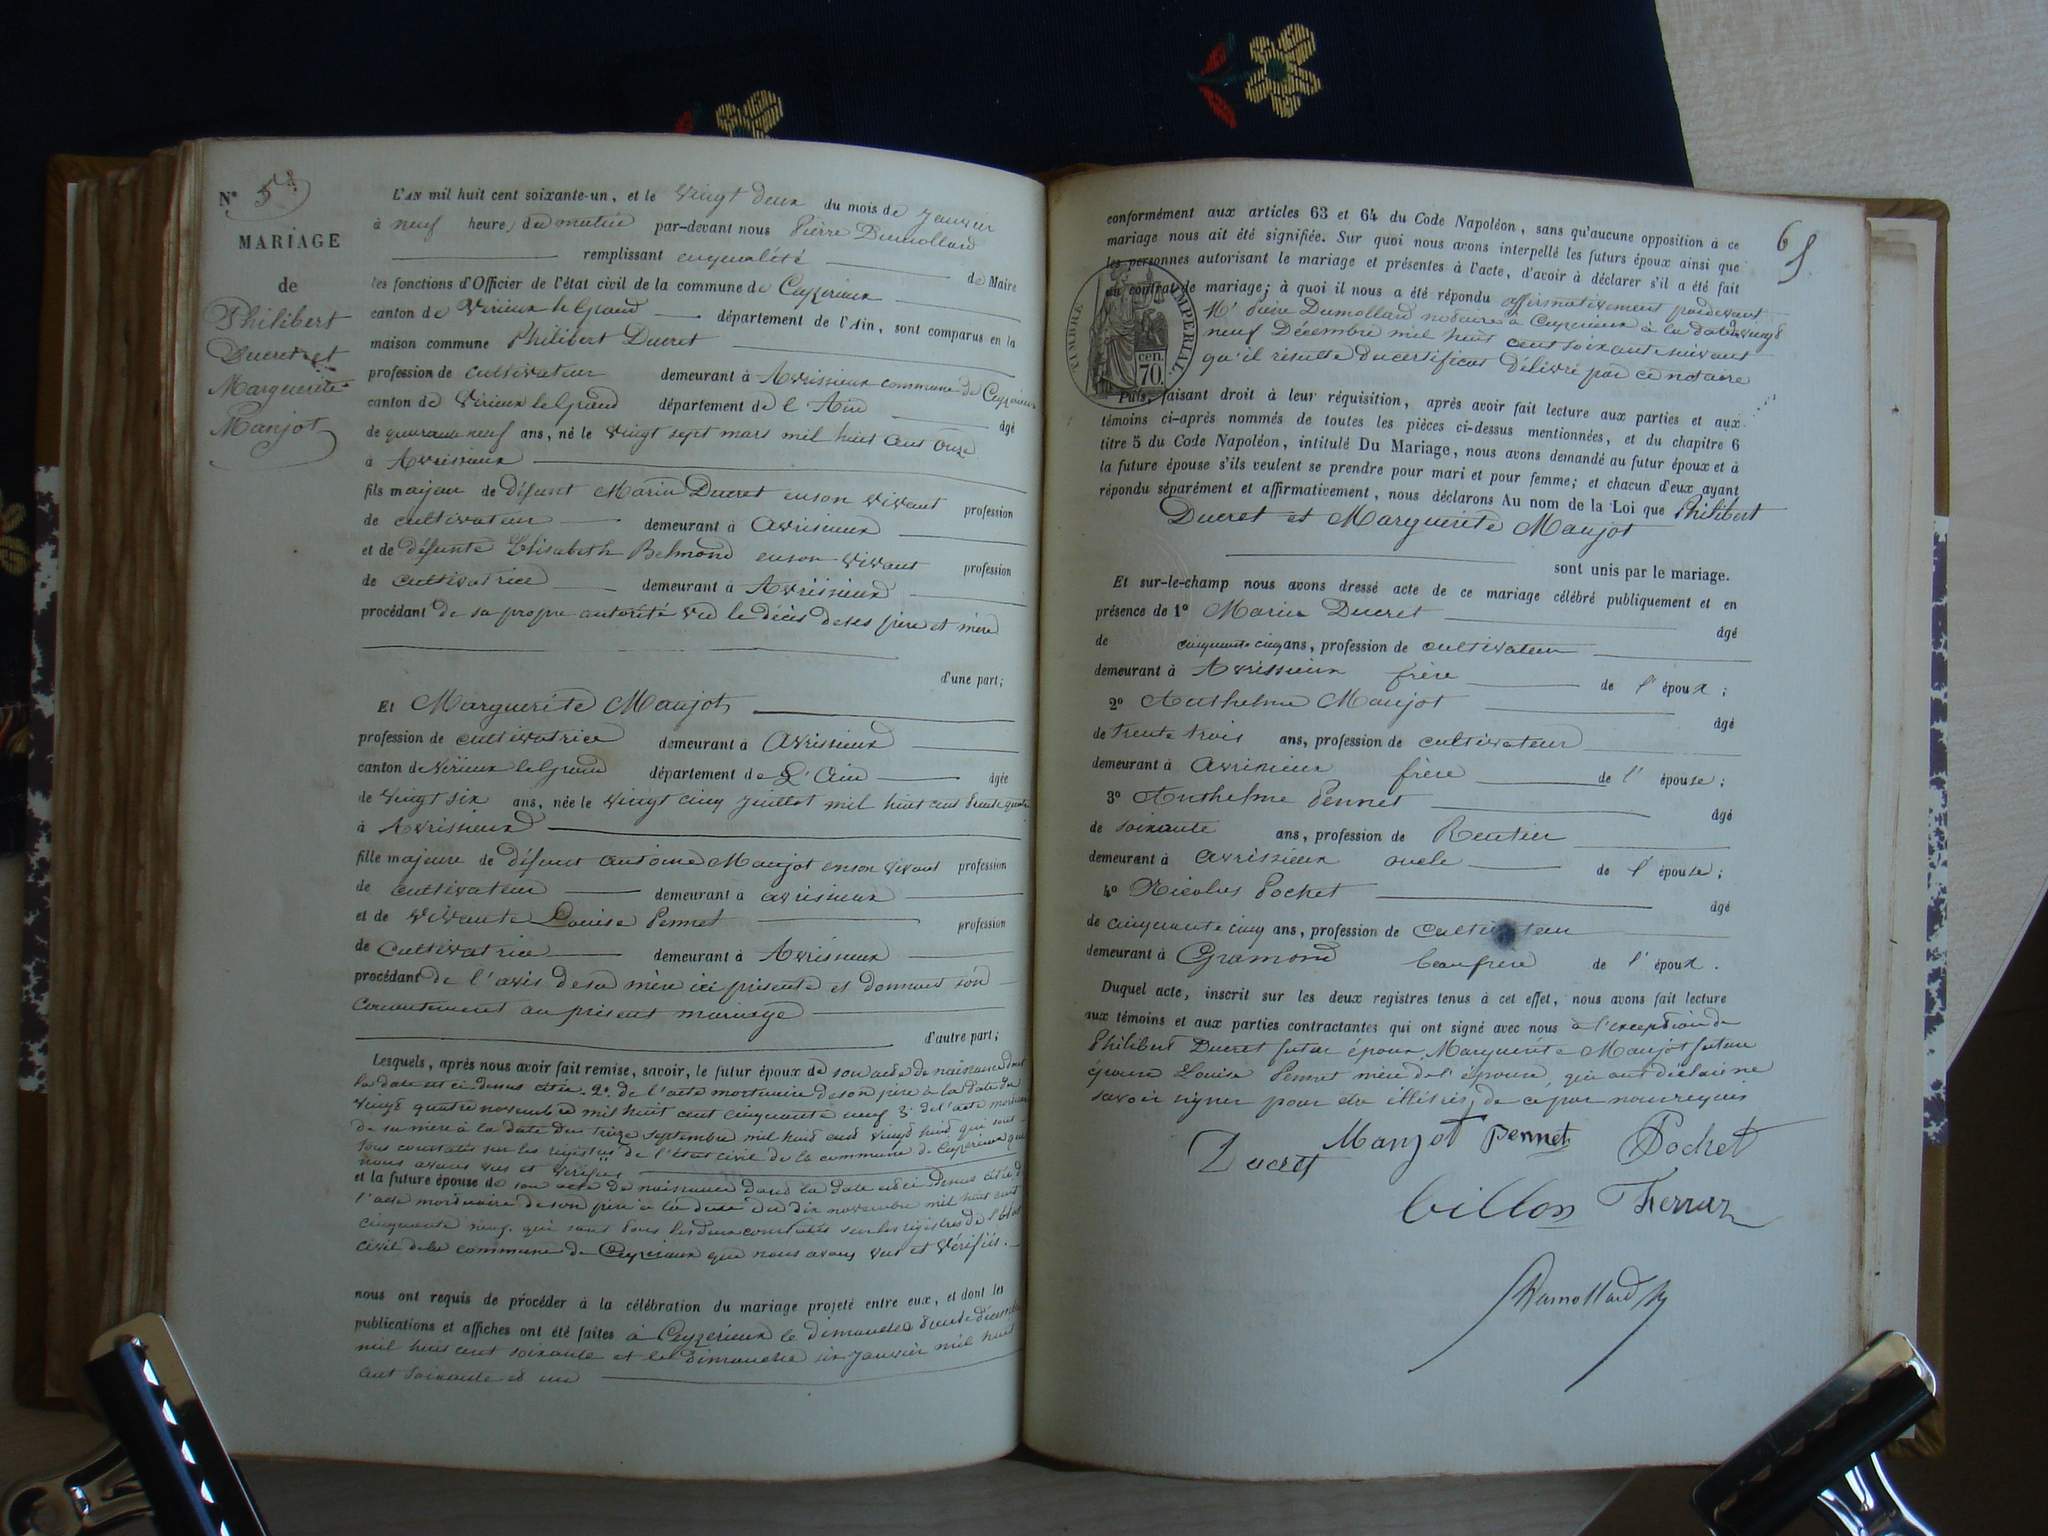 N° 5
MARIAGE
de
Philibert
Ducret et
Marguerite
Manjot
L'AN mil huit cent soixante-un, et le vingt deux du mois de janvier
à neuf heure, du matin par-devant nous Pierre Dumollard
remplissant en qualité de Maire
les fonctions d'Officier de l'état civil de la commune de Ceyzerieux
canton de Virieux le Grand département de l'Ain, sont comparus en la
maison commune Philibert Ducret
profession de cultivateur demeurant à Avrissieux commune de Ceyzerieux
canton de Virieux le Grand département de l'Ain âgé
de quarante neuf ans, né le vingt sept mars mil huit cent onze
à Avrissieux
fils majeur de défunt Marin Ducret en son vivant profession
de cultivateur demeurant à Avrissieux
et de défunte Elisabeth Belmond en son vivant profession
de cultivatrice demeurant à Avrissieux
procédant de sa propre autorité vu le décès de ses père et mère
d'une part;
Et Marguerite Manjot
profession de cultivatrice demeurant à Avrissieux
canton de Virieux le Grand département de L'Ain âgée
de vingt six ans, née le vingt cinq juillet mil huit cent trente quatre
à Avrissieux
fille majeure de défunt Antoine Manjot en son vivant profession
de cultivateur demeurant à avrissieux
et de vivante Louise Pennet profession
de cultivatrice demeurant à Avrissieux
procédant de l'avis de sa mère ici présente et donnant son
consentement au présent mariage
d'autre part;
Lesquels, après nous avoir fait remise, savoir, le futur époux de son acte de naissance dont
la date est ci dessus citée. 2° de l'acte mortuaire de son père à la date du
vingt quatre novembre mil huit cent cinquante neuf 3° de l'acte mortuaire
de sa mère à la date du treize septembre mil huit cent vingt huit qui sont
tous constatés sur les registres de l'état civil de la commune de Ceyzerieux que
nous avons vus et vérifiés
et la future épouse de son acte de naissance dont la date est ci dessus citée de
l'acte mortuaire de son père à la date du dix novembre mil huit cent
cinquante neuf. qui sont tous les deux constatés sur les registres de l'état
civil de la commune de Ceyzerieux que nous avons vus et vérifiés.
nous ont requis de procéder à la célébration du mariage projeté entre eux, et dont les
publications et affiches ont été faites à Ceyzerieux le dimanche trente décembre
mil huit cent soixante et le dimanche six janvier mil huit
cent soixante et un
6
conformément aux articles 63 et 64 du Code Napoléon, sans qu'aucune opposition à ce
mariage nous ait été signifiée. Sur quoi nous avons interpellé les futurs époux ainsi que
les personnes autorisant le mariage et présentes à l'acte, d'avoir à déclarer s'il a été fait
un contrat de mariage; à quoi il nous a été répondu affirmativement pardevant
Me Pierre Dumollard notaire à Ceyzerieux à la date du vingt
neuf Décembre mil huit cent soixante suivant
qu'il résulte du certificat délivré par ce notaire
TIMBRE IMPERIAL
cen.
70.
Puis, faisant droit à leur réquisition, après avoir fait lecture aux parties et aux
témoins ci-après nommés de toutes les pièces ci-dessus mentionnées, et du chapitre 6
titre 5 du Code Napoléon, intitulé Du Mariage, nous avons demandé au futur époux et à
la future épouse s'ils veulent se prendre pour mari et pour femme; et chacun d'eux ayant
répondu séparément et affirmativement, nous déclarons Au nom de la Loi que Philibert
Ducret et Marguerite Manjot
sont unis par le mariage.
Et sur-le-champ nous avons dressé acte de ce mariage célébré publiquement et en
présence de 1° Marin Ducret âgé
de cinquante cinq ans, profession de cultivateur
demeurant à Avrissieux frère de l'époux;
2° Anthelme Manjot âgé
de trente trois ans, profession de cultivateur
demeurant à Avrissieux frère de l'épouse;
3° Anthelme Pennet âgé
de soixante ans, profession de Rentier
demeurant à avrissieux oncle de l'épouse;
4° Nicolas Pochet âgé
de cinquante cinq ans, profession de cultivateur
demeurant à Gramond beau frère de l'époux.
Duquel acte, inscrit sur les deux registres tenus à cet effet, nous avons fait lecture
aux témoins et aux parties contractantes qui ont signé avec nous à l'exception de
Philibert Ducret futur époux, Marguerite Manjot future
épouse Louise Pennet mère de l'épouse, qui ont déclaré ne
savoir signer pour être illétrés, de ce par nous requis
Ducret Manjot Pennet Pochet
Billon Ferraz
Dumollard